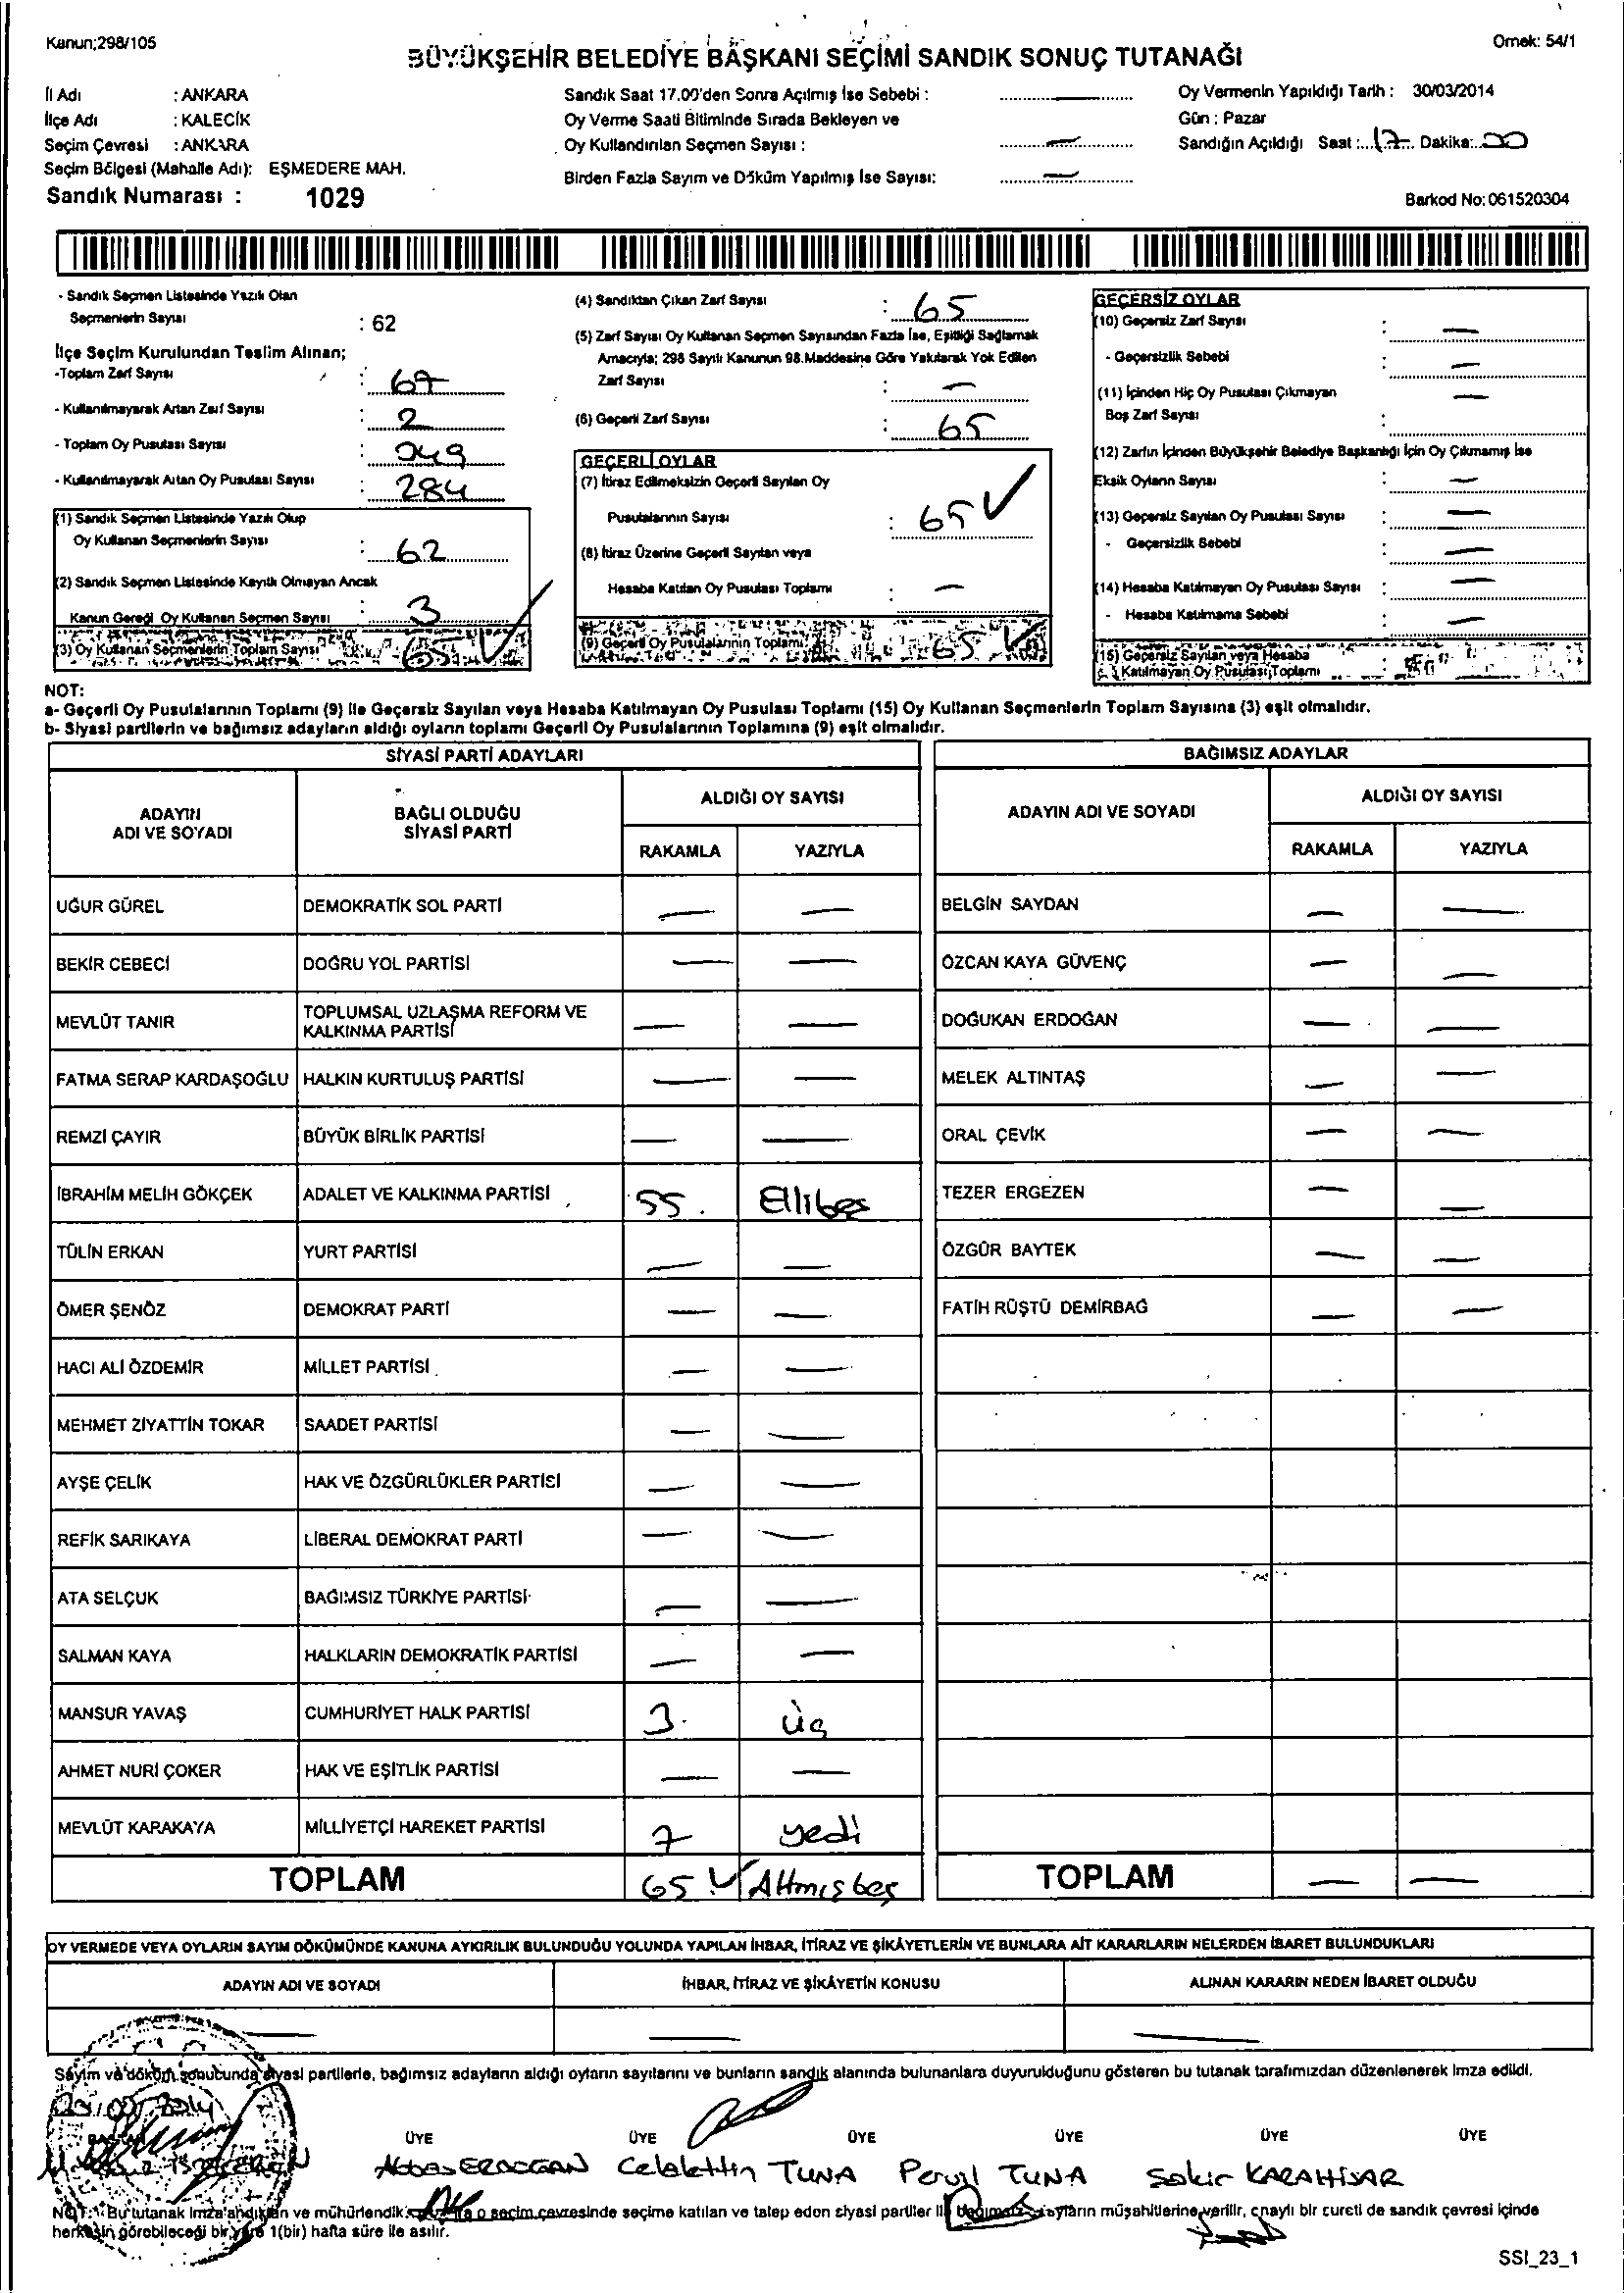 Kanun;298/105
Örnek: 54/1
BÜYÜKŞEHİR BELEDİYE BAŞKANI SEÇİMİ SANDIK SONUÇ TUTANAĞI
İl Adı : ANKARA
İlçe Adı : KALECİK
Seçim Çevresi : ANKARA
Seçim Bölgesi (Mahalle Adı): EŞMEDERE MAH.
Sandık Numarası : 1029
Sandık Saat 17.00'den Sonra Açılmış İse Sebebi : —
Oy Verme Saati Bitiminde Sırada Bekleyen ve
Oy Kullandırılan Seçmen Sayısı : —
Birden Fazla Sayım ve Döküm Yapılmış İse Sayısı: —
Oy Vermenin Yapıldığı Tarih : 30/03/2014
Gün : Pazar
Sandığın Açıldığı Saat :...17... Dakika:..00
Barkod No:061520304
- Sandık Seçmen Listesinde Yazılı Olan
Seçmenlerin Sayısı : 62
İlçe Seçim Kurulundan Teslim Alınan;
-Toplam Zarf Sayısı : 67
- Kullanılmayarak Artan Zarf Sayısı : 2
- Toplam Oy Pusulası Sayısı : 349
- Kullanılmayarak Artan Oy Pusulası Sayısı : 284
(1) Sandık Seçmen Listesinde Yazılı Olup
Oy Kullanan Seçmenlerin Sayısı : 62
(2) Sandık Seçmen Listesinde Kayıtlı Olmayan Ancak
Kanun Gereği Oy Kullanan Seçmen Sayısı : 3
(3) Oy Kullanan Seçmenlerin Toplam Sayısı 65 ✓
(4) Sandıktan Çıkan Zarf Sayısı : 65
(5) Zarf Sayısı Oy Kullanan Seçmen Sayısından Fazla İse, Eşitliği Sağlamak
Amacıyla; 298 Sayılı Kanunun 98.Maddesine Göre Yakılarak Yok Edilen
Zarf Sayısı : —
(6) Geçerli Zarf Sayısı : 65
GEÇERLİ OYLAR
(7) İtiraz Edilmeksizin Geçerli Sayılan Oy
Pusulalarının Sayısı : 65 ✓
(8) İtiraz Üzerine Geçerli Sayılan veya
Hesaba Katılan Oy Pusulası Toplamı : —
(9) Geçerli Oy Pusulalarının Toplamı : 65 ✓
GEÇERSİZ OYLAR
(10) Geçersiz Zarf Sayısı : —
- Geçersizlik Sebebi : —
(11) İçinden Hiç Oy Pusulası Çıkmayan
Boş Zarf Sayısı : —
(12) Zarfın İçinden Büyükşehir Belediye Başkanlığı İçin Oy Çıkmamış İse
Eksik Oyların Sayısı : —
(13) Geçersiz Sayılan Oy Pusulası Sayısı : —
- Geçersizlik Sebebi : —
(14) Hesaba Katılmayan Oy Pusulası Sayısı : —
- Hesaba Katılmama Sebebi : —
(15) Geçersiz Sayılan veya Hesaba
Katılmayan Oy Pusulası Toplamı
NOT:
a- Geçerli Oy Pusulalarının Toplamı (9) ile Geçersiz Sayılan veya Hesaba Katılmayan Oy Pusulası Toplamı (15) Oy Kullanan Seçmenlerin Toplam Sayısına (3) eşit olmalıdır.
b- Siyasi partilerin ve bağımsız adayların aldığı oyların toplamı Geçerli Oy Pusulalarının Toplamına (9) eşit olmalıdır.
SİYASİ PARTİ ADAYLARI
ADAYIN ADI VE SOYADI
BAĞLI OLDUĞU SİYASİ PARTİ
ALDIĞI OY SAYISI
RAKAMLA YAZIYLA
UĞUR GÜREL DEMOKRATİK SOL PARTİ — —
BEKİR CEBECİ DOĞRU YOL PARTİSİ — —
MEVLÜT TANIR TOPLUMSAL UZLAŞMA REFORM VE KALKINMA PARTİSİ — —
FATMA SERAP KARDAŞOĞLU HALKIN KURTULUŞ PARTİSİ — —
REMZİ ÇAYIR BÜYÜK BİRLİK PARTİSİ — —
İBRAHİM MELİH GÖKÇEK ADALET VE KALKINMA PARTİSİ 55. Ellibeş
TÜLİN ERKAN YURT PARTİSİ — —
ÖMER ŞENÖZ DEMOKRAT PARTİ — —
HACI ALİ ÖZDEMİR MİLLET PARTİSİ — —
MEHMET ZİYATTİN TOKAR SAADET PARTİSİ — —
AYŞE ÇELİK HAK VE ÖZGÜRLÜKLER PARTİSİ — —
REFİK SARIKAYA LİBERAL DEMOKRAT PARTİ — —
ATA SELÇUK BAĞIMSIZ TÜRKİYE PARTİSİ — —
SALMAN KAYA HALKLARIN DEMOKRATİK PARTİSİ — —
MANSUR YAVAŞ CUMHURİYET HALK PARTİSİ 3. üç
AHMET NURİ ÇOKER HAK VE EŞİTLİK PARTİSİ — —
MEVLÜT KARAKAYA MİLLİYETÇİ HAREKET PARTİSİ 7 yedi
TOPLAM 65 ✓ Altmışbeş
BAĞIMSIZ ADAYLAR
ADAYIN ADI VE SOYADI
ALDIĞI OY SAYISI
RAKAMLA YAZIYLA
BELGİN SAYDAN — —
ÖZCAN KAYA GÜVENÇ — —
DOĞUKAN ERDOĞAN — —
MELEK ALTINTAŞ — —
ORAL ÇEVİK — —
TEZER ERGEZEN — —
ÖZGÜR BAYTEK — —
FATİH RÜŞTÜ DEMİRBAĞ — —
TOPLAM — —
OY VERMEDE VEYA OYLARIN SAYIM DÖKÜMÜNDE KANUNA AYKIRILIK BULUNDUĞU YOLUNDA YAPILAN İHBAR, İTİRAZ VE ŞİKÂYETLERİN VE BUNLARA AİT KARARLARIN NELERDEN İBARET BULUNDUKLARI
ADAYIN ADI VE SOYADI İHBAR, İTİRAZ VE ŞİKÂYETİN KONUSU ALINAN KARARIN NEDEN İBARET OLDUĞU
— — —
Sayım ve döküm sonucunda siyasi partilerle, bağımsız adayların aldığı oyların sayılarını ve bunların sandık alanında bulunanlara duyurulduğunu gösteren bu tutanak tarafımızdan düzenlenerek imza edildi.
ÜYE ÜYE ÜYE ÜYE ÜYE ÜYE
Abbas ERDOGAN Celalettin TUNA TUNA Sakir KARAHİSAR
NOT: Bu tutanak imzalandıktan ve mühürlendikten o seçim çevresinde seçime katılan ve talep eden siyasi partiler ile bağımsız adayların müşahitlerine verilir, onaylı bir sureti de sandık çevresi içinde
herkesin görebileceği bir yere 1(bir) hafta süre ile asılır.
SSI_23_1